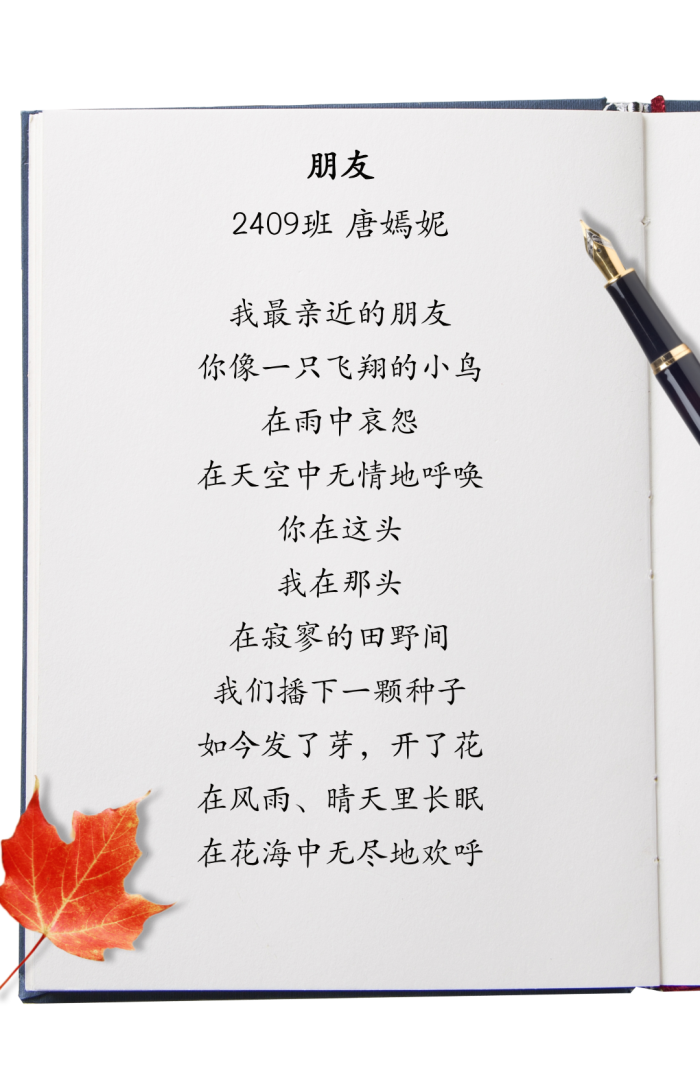 朋友
2409班 唐嫣妮
我最亲近的朋友
你像一只飞翔的小鸟
在雨中哀怨
在天空中无情地呼唤
你在这头
我在那头
在寂寥的田野间
我们播下一颗种子
如今发了芽，开了花
在风雨、晴天里长眠
在花海中无尽地欢呼